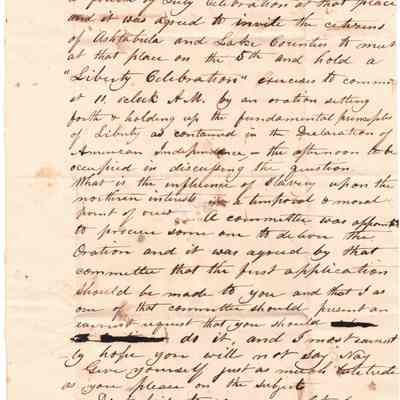 a friend of July Celebration at that place
and it was agreed to invite the citizens
of Ashtabula and Lake Counties to meet
at that place on the 5th and hold a
"Liberty Celebration" Exercises to commence
at 11, oclock A.M. by an oration setting
forth & holding up the fundamental principles
of Liberty as contained in the Declaration of
American Independence - the afternoon to be
occupied in discussing the question
What is the influence of Slavery upon the
northern interests in a temporal & moral
point of view. A committee was appointed
to procure some one to deliver the
Oration and it was agreed by that
committee that the first application
should be made to you and that I as
one of that committee should present an
earnest request that you should
do it, and I most earnest
ly hope you will not Say Nay
Give yourself just as much latitude
as you please on the subject